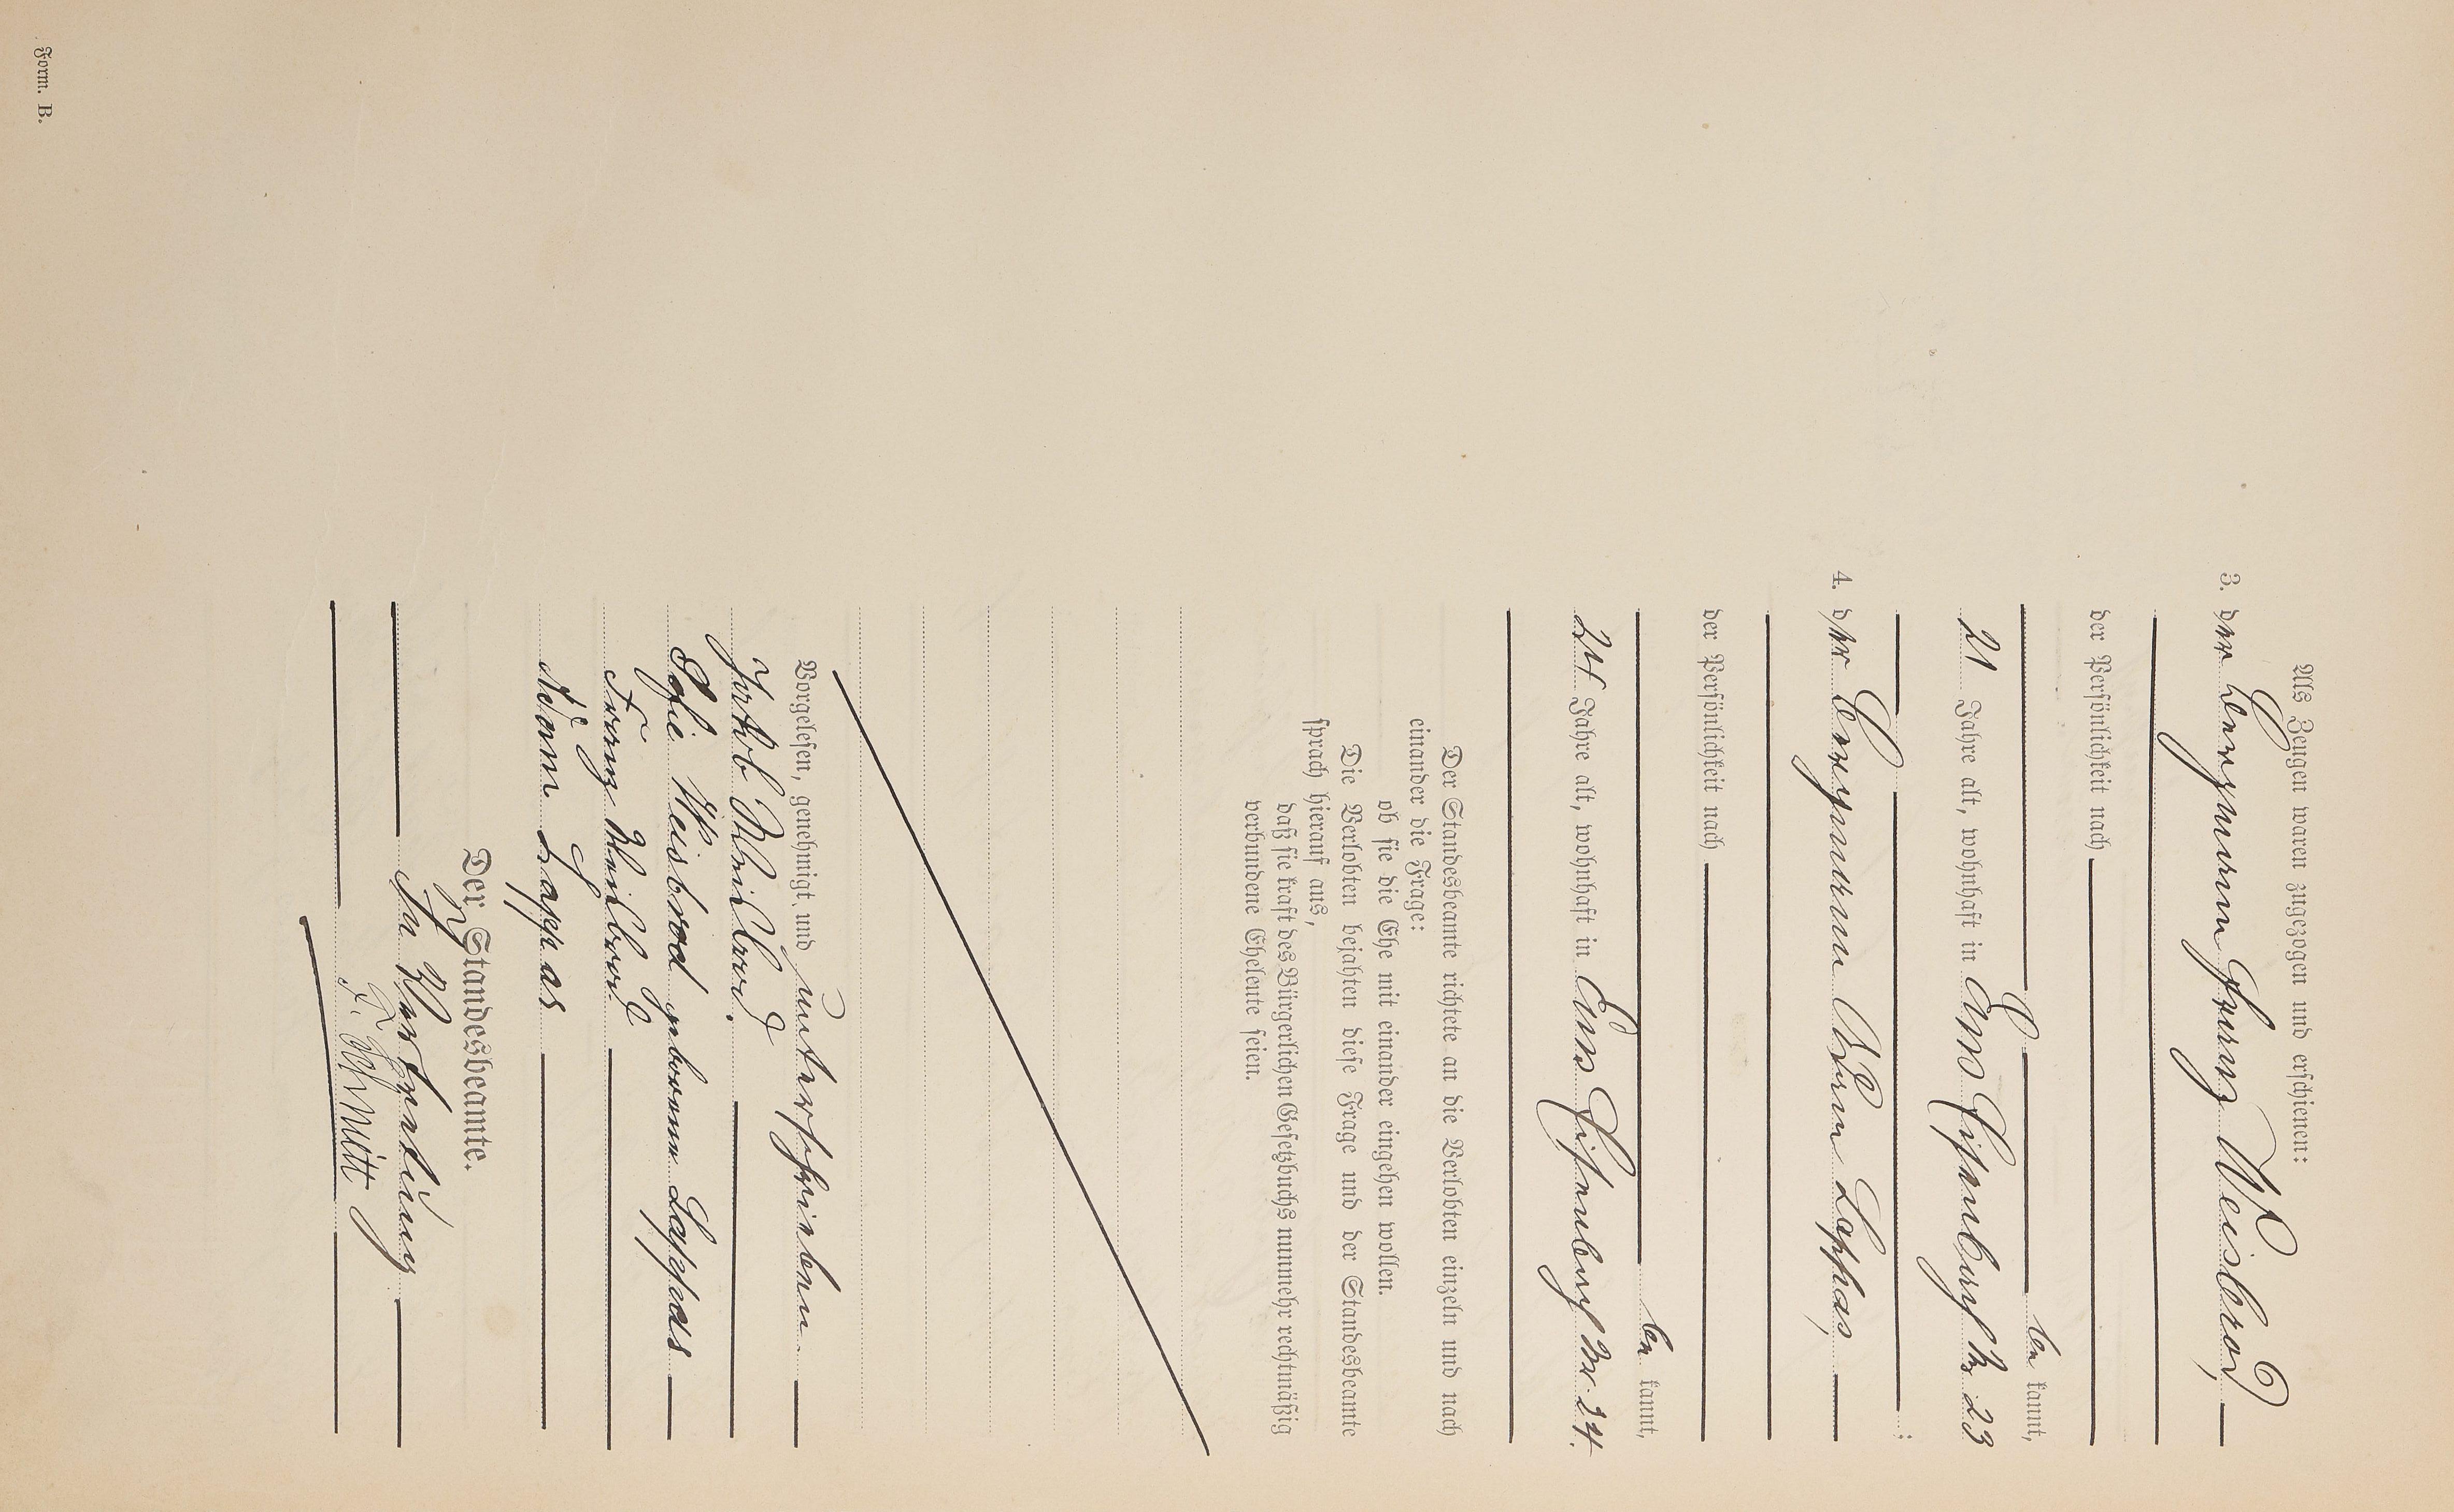 Als Zeugen waren zugezogen und erschienen:
3. der Bergmann Franz Weisbrod,
der Persönlichkeit nach
be kannt,
21 Jahre alt, wohnhaft in
4. der Bergmann Adam Lappas,
der Persönlichkeit nach
be kannt,
24 Jahre alt, wohnhaft in
Der Standesbeamte richtete an die Verlobten einzeln und nach
einander die Frage:
ob sie die Ehe mit einander eingehen wollen.
Die Verlobten bejahten diese Frage und der Standesbeamte
sprach hierauf aus,
daß sie kraft des Bürgerlichen Gesetzbuchs nunmehr rechtmäßig
verbundene Eheleute seien.
Vorgelesen, genehmigt und unterschrieben
Jakob Weisbrod.
Sofie Weisbrod geborene Lappas
Franz Weisbrod
Adam Lappas
Der Standesbeamte.
In Vertretung
F. Schmitt
Form. B.